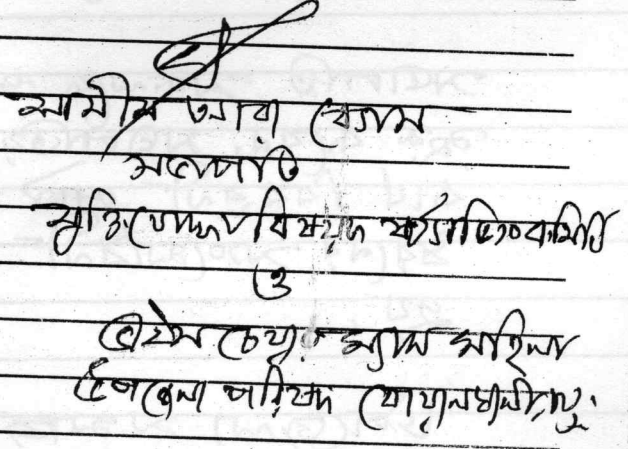 শামীম আরা বেগম
সভাপতি
মুক্তিযোদ্ধা বিষয়ক স্ট্যান্ডিং কমিটি
ও
ভাইস চেয়ারম্যান মহিলা
উপজেলা পরিষদ বোয়ালখালী,